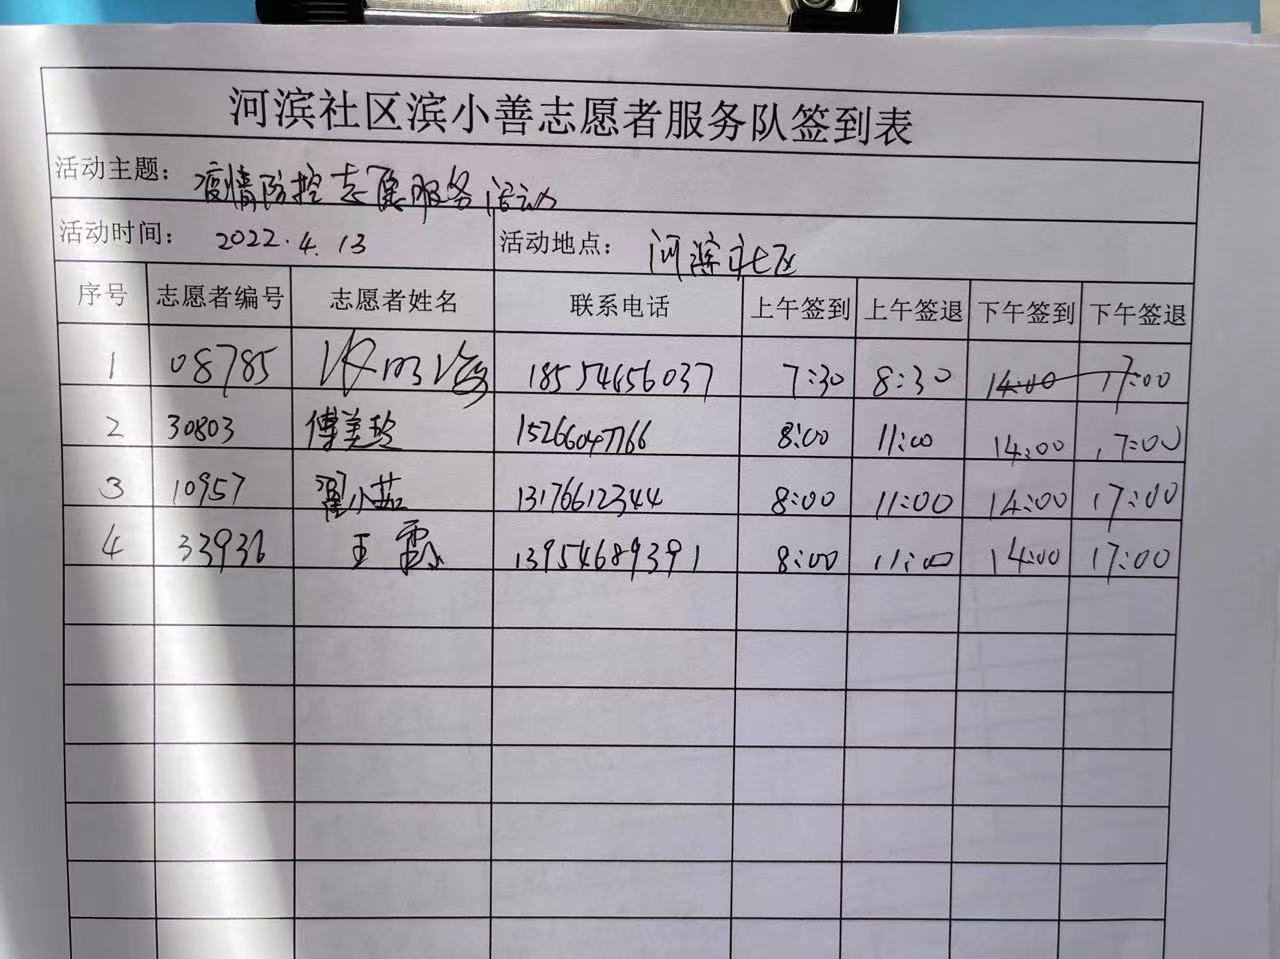 河滨社区滨小善志愿者服务队签到表
活动主题： 疫情防控志愿服务活动
活动时间： 2022.4.13 活动地点： 河滨社区
序号 志愿者编号 志愿者姓名 联系电话 上午签到 上午签退 下午签到 下午签退
1 08785 18554656037 7:30 8:30 14:00 17:00
2 30803 傅美玲 15266047766 8:00 11:00 14:00 17:00
3 10957 翟小茹 13176612344 8:00 11:00 14:00 17:00
4 33936 王霞 13954689391 8:00 11:00 14:00 17:00